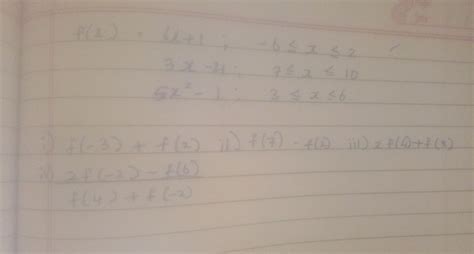 f(x) = 6x+1 ; -6 ≤ x ≤ 2
3x - 21 ; 7 ≤ x ≤ 10
5x² - 1 ; 3 ≤ x ≤ 6
i) f(-3) + f(2) ii) f(7) - f(6) iii) 2f(6) + f(x)
2f(-2) - f(6)
f(4) + f(-2)